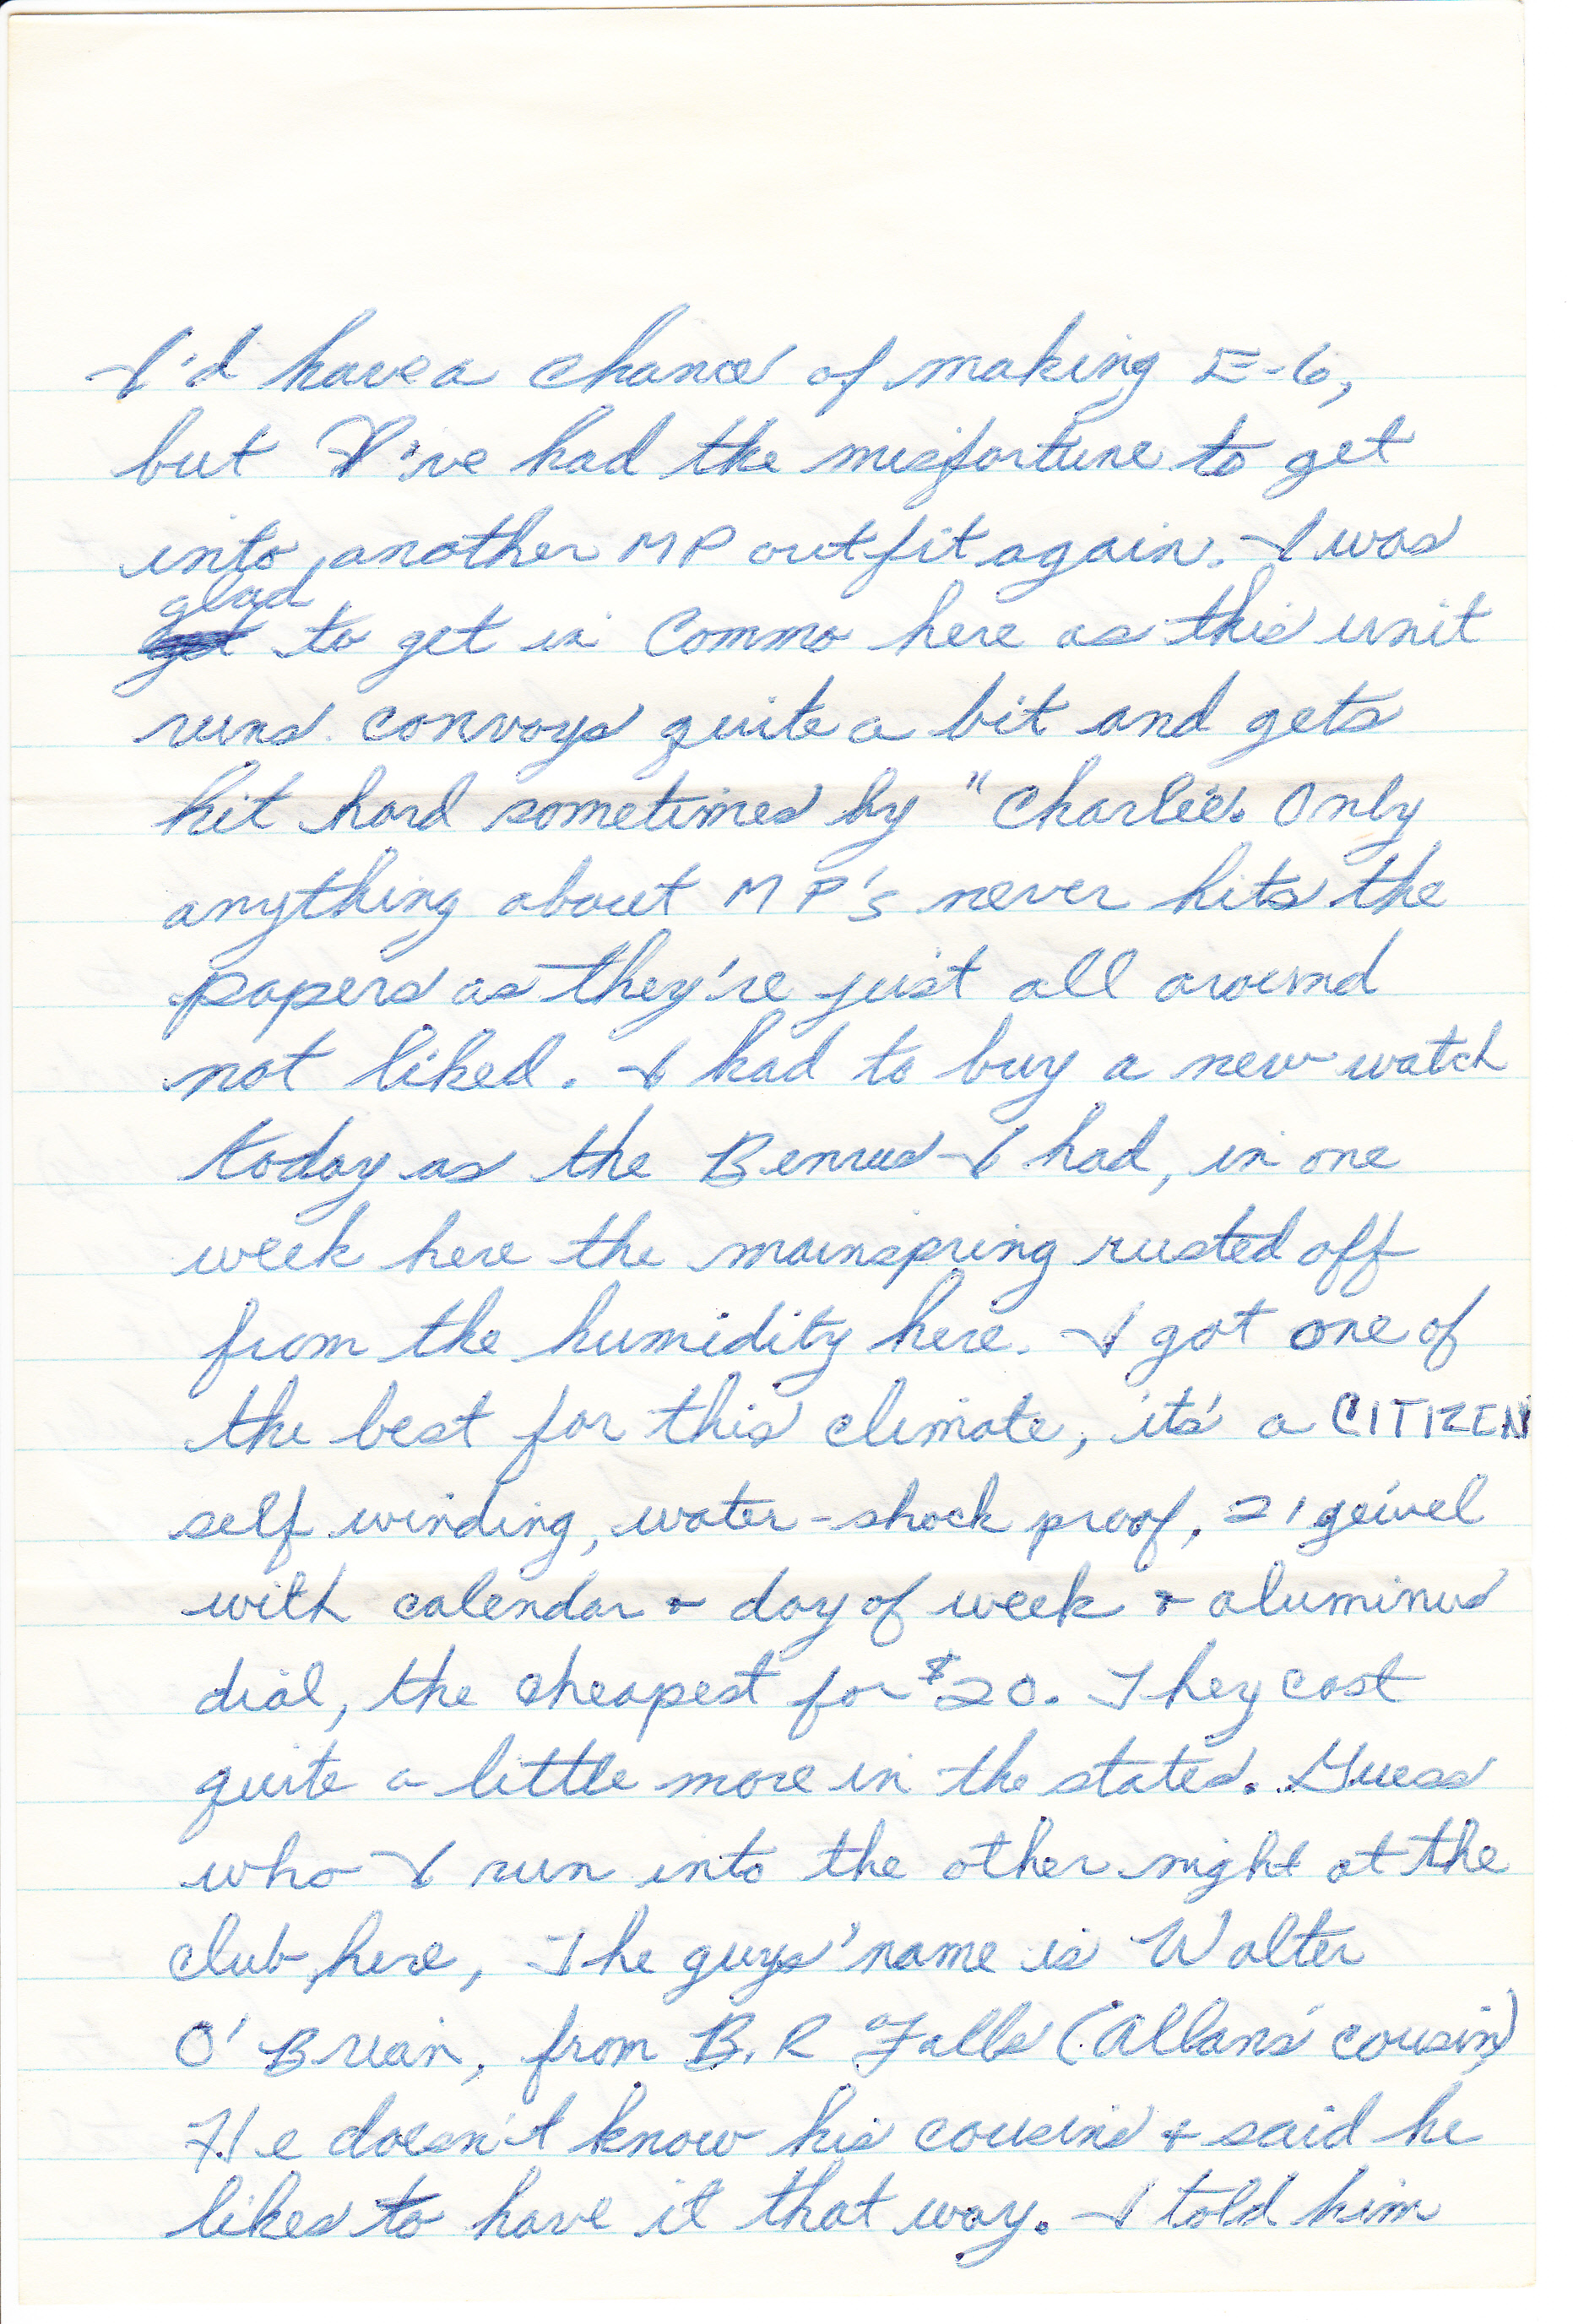 I'd have a chance of making E-6,
but I've had the misfortune to get
into another MP outfit again. I was
glad to get in Commo here as this unit
runs convoys quite a bit and gets
hit hard sometimes by "Charlie". Only
anything about MP's never hits the
papers as they're just all around
not liked. I had to buy a new watch
today as the Benrus I had, in one
week here the mainspring rusted off
from the humidity here. I got one of
the best for this climate, it's a CITIZEN
self winding, water-shock proof, 21 geivel
with calendar + day of week + aluminus
dial, the cheapest for $20. They cost
quite a little more in the states. Guess
who I run into the other night at the
club here, The guys' name is Walter
O'Breian, from B.R Falls (Allans' cousin)
He doesn't know his cousins + said he
likes to have it that way. I told him